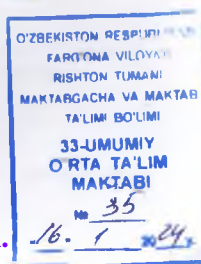 O'ZBEKISTON
FARG'ONA VILOYATI
RISHTON TUMANI
MAKTABGACHA VA MAKTAB
TA'LIMI BO'LIMI
33-UMUMIY
O'RTA TA'LIM
MAKTABI
№ 35
16. 1 2024 y.